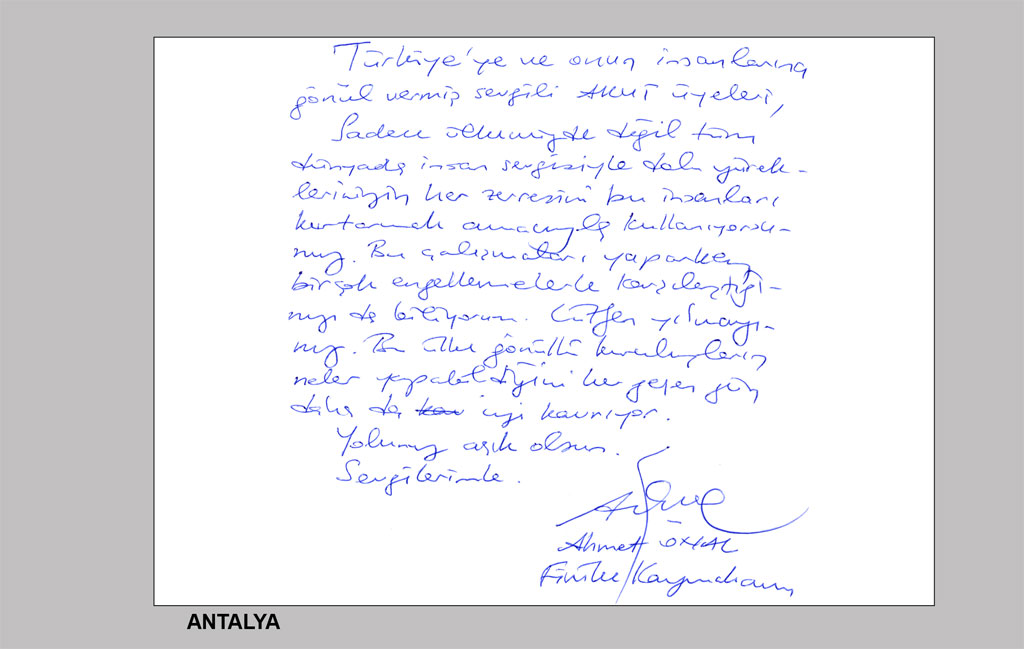 Türkiye'ye ve onun insanlarına
gönül vermiş sevgili AKUT üyeleri,
Sadece ülkemizde değil tüm
dünyada insan sevgisiyle dolu yürek-
lerinizin her zerresini bu insanları
kurtarmak amacıyla kullanıyorsu-
nuz. Bu çalışmaları yaparken
birçok engellemelerle karşılaştığı-
nızı da biliyorum. Lütfen yılmayı-
nız. Bu ülke gönüllü kuruluşların
neler yapabildiğini her geçen gün
daha da iyi kavrıyor.
Yolunuz açık olsun.
Sevgilerimle.
Ahmet
Finike Kaymakamı
ANTALYA